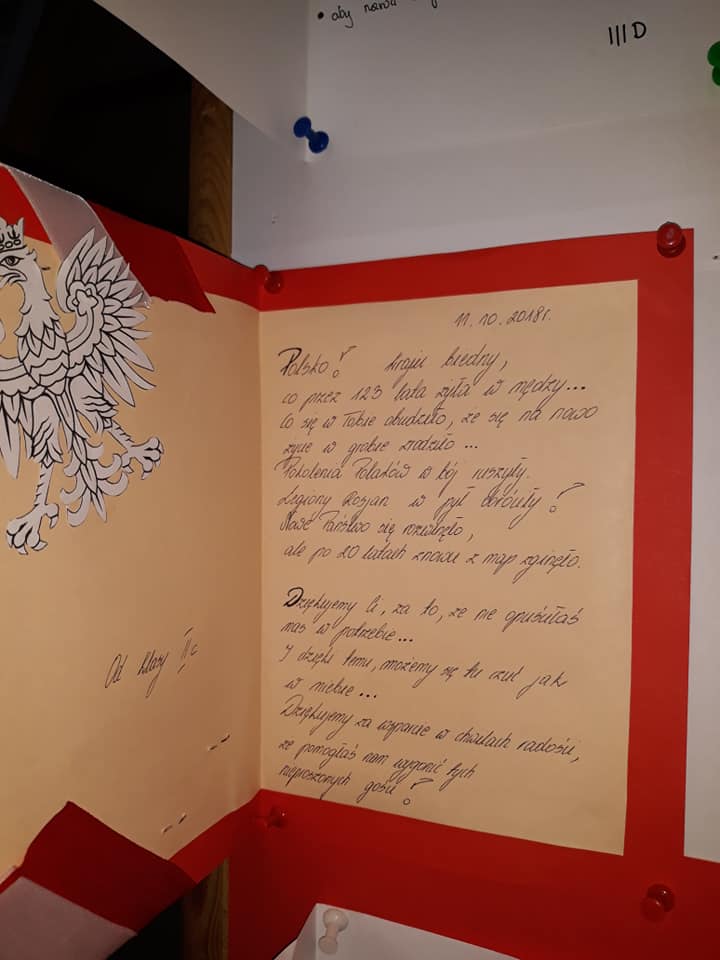 • aby
III D
11.10.2018r.
Polsko! kraju biedny,
co przez 123 lata żyła w nędzy...
Co się w Tobie obudziło, że się na nowo
życie w grobie zrodziło...
Pokolenia Polaków w bój ruszyły.
Legiony Rosjan w pył obróciły!
Nowe Państwo się rozwinęło,
ale po 20 latach znowu z map zginęło.
Dziękujemy Ci, za to, że nie opuściłaś
nas w potrzebie...
I dzięki temu, możemy się tu czuć jak
w niebie...
Dziękujemy za wsparcie w chwilach radości,
że pomogłaś nam wygonić tych
nieproszonych gości!
Od klasy II c